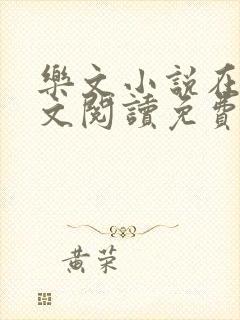 樂文小說在
文閱讀免費
黃荣